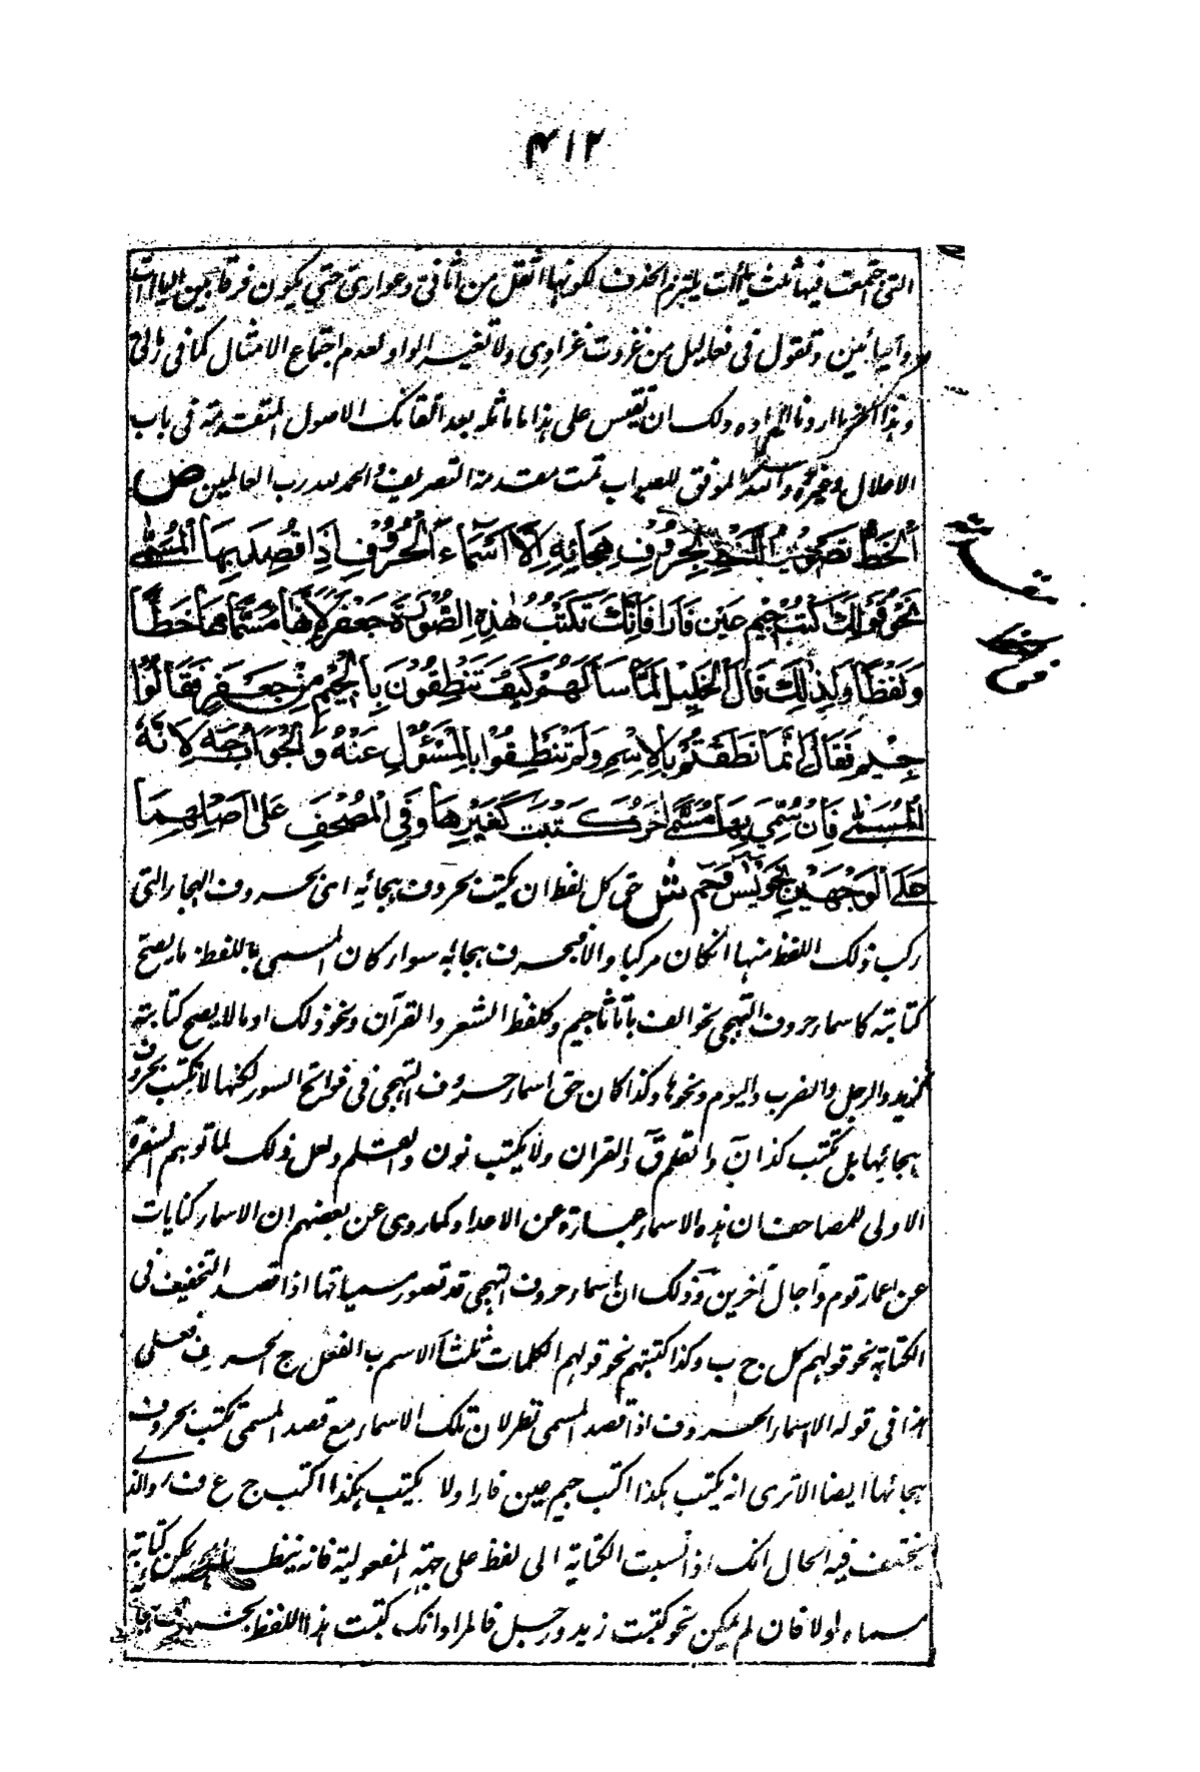 ۴۱۲
التی اجتمعت فیها ثلث یاأت یلتزم الحذف لکونها اثقل من اثافی وعواری حتی یکون فرقا بین الیاأت
وأییائین وتقول فی فعالیل من غزوت غزاوی ولا تغیر الواو لعدم اجتماع الامثال کما فی رمائی
وهذا آخر ما اردنا ایراده ولک ان تقیس علی هذا ما ماثله بعد اتقانک الاصول المتقدمة فی باب
الاعلال وغیره والله الموفق للصواب تمت مقدمة التصریف والحمد لله رب العالمین ص
اَلْخَطُّ تَصْوِیْرُ اللَّفْظِ بِحُرُوْفِ هِجَائِهٖ اِلَّا اَسْمَاءَ الْحُرُوْفِ اِذَا قُصِدَ بِهَا الْمُسَمّٰی
نَحْوُ قَوْلِكَ اُكْتُبْ جِیْم عَیْن فَا رَا فَاِنَّكَ تَكْتُبُ هٰذِهِ الصُّوْرَةَ جَعْفَرْ لِاَنَّهَا مُسَمَّاهَا خَطًّا
وَلَفْظًا وَلِذٰلِكَ قَالَ الْخَلِیْلُ لَمَّا سَأَلَهُمْ كَیْفَ تَنْطِقُوْنَ بِالْجِیْمِ مِنْ جَعْفَرٍ فَقَالُوْا
جِیْم فَقَالَ اِنَّمَا نَطَقْتُمْ بِالْاِسْمِ وَلَمْ تَنْطِقُوْا بِالْمَسْئُوْلِ عَنْهُ وَالْجَوَابُ جَهْ لِاَنَّهٗ
الْمُسَمّٰی فَاِنْ سُمِّیَ بِهَا مُسَمًّی اٰخَرُ كُتِبَتْ كَغَیْرِهَا وَفِی الْمُصْحَفِ عَلٰی اَصْلِهِمَا
عَلَی الْوَجْهَیْنِ نَحْوُ یٰسٓ وَحٰمٓ ش حق کل لفظ ان یکتب بحروف هجائه ای بحروف الهجاء التی
رکب ذلک اللفظ منها ان کان مرکبا والا فبحرف هجائه سواء کان المسمی باللفظ مما یصح
کتابته کاسماء حروف التهجی نحو الف با تا ثا جیم وکلفظ الشعر والقرآن ونحو ذلک او مما لا یصح کتابته
کزید والرجل والضرب والیوم ونحوها وکذا کان حق اسماء حروف التهجی فی فواتح السور لکنها لا تکتب بحروف
هجائها بل تکتب کذا نٓ والقلم قٓ والقرآن ولا یکتب نون والقلم ولعل ذلک لما توهم السفرة
الاولی للمصاحف ان هذه الاسماء عبارة عن الاعداد کما روی عن بعضهم ان الاسماء کنایات
عن اعمار قوم وآجال آخرین وذلک ان اسماء حروف التهجی قد تصور مسمیاتها اذا قصد التخفیف فی
الکتابة نحو قولهم کل ج ب وکذا کتبتهم نحو قولهم الکلمات ثلث ا الاسم ب الفعل ج الحرف فعلی
هذا فی قوله الا اسماء الحروف اذا قصد المسمی نظر لان تلک الاسماء مع قصد المسمی تکتب بحروف
هجائها ایضا الا تری انه یکتب هکذا اکتب جیم عین فا را ولا یکتب هکذا اکتب ج ع ف ر والذی
یختلف فیه الحال انک اذا نسبت الکتابة الی لفظ علی جهة المفعولیة فانه ینظر هل یمکن کتابة
مسماه اولا فان لم یمکن نحو کتبت زید ورجل فالمراد انک کتبت هذا اللفظ بحروف هجائه